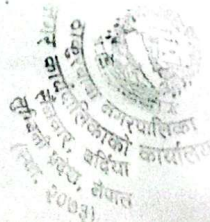 ठाकुरबाबा नगरपालिका
नगर कार्यपालिकाको कार्यालय
बर्दिया
लुम्बिनी प्रदेश, नेपाल
(स्था. २०७३)